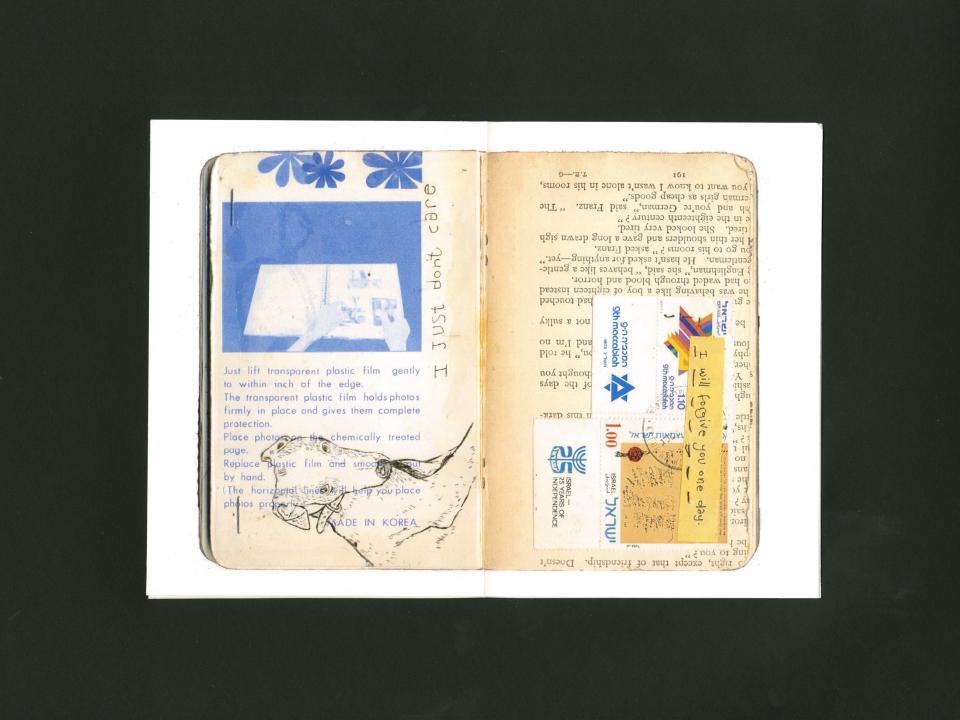 I Just dont care
Just lift transparent plastic film gently
to within inch of the edge.
The transparent plastic film holds photos
firmly in place and gives them complete
protection.
Place photos on the chemically treated
page.
Replace plastic film and smooth out
by hand.
(The horizontal lines will help you place
photos properly
MADE IN KOREA
right, except that of friendship. Doesn't
ing to you ?"
be ?
said
if this dark-
of the days
thought you
you," he told
and I'm no
not a sulky
had touched
he was behaving like a boy of eighteen instead
had waded through blood and horror.
Englishman," she said, "behaves like a gentle-
gentleman. He hasn't asked for anything—yet."
you go to his rooms ?" asked Franz.
her thin shoulders and gave a long drawn sigh
tired. She looked very tired.
e in the eighteenth century ?"
and you're German," said Franz. "The
erman girls as cheap goods."
you want to know I wasn't alone in his rooms,
191
T.B.—G
המכביה ה-9
9th maccabiah
ישראל
המכביה ה-9
9th maccabiah
1.10
I will forgive you one day.
1.00
ISRAEL
ישראל
25
ISRAEL —
25 YEARS OF
INDEPENDENCE